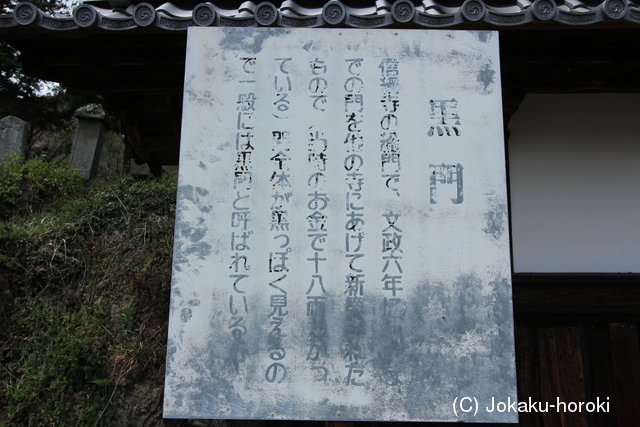 黒門
信福寺の総門で、文政六年に
での門を他の寺にあげて新築された
もので、当時のお金で十八両かかっ
ている）門全体が黒っぽく見えるの
で一般には黒門と呼ばれている
(C) Jokaku-horoki